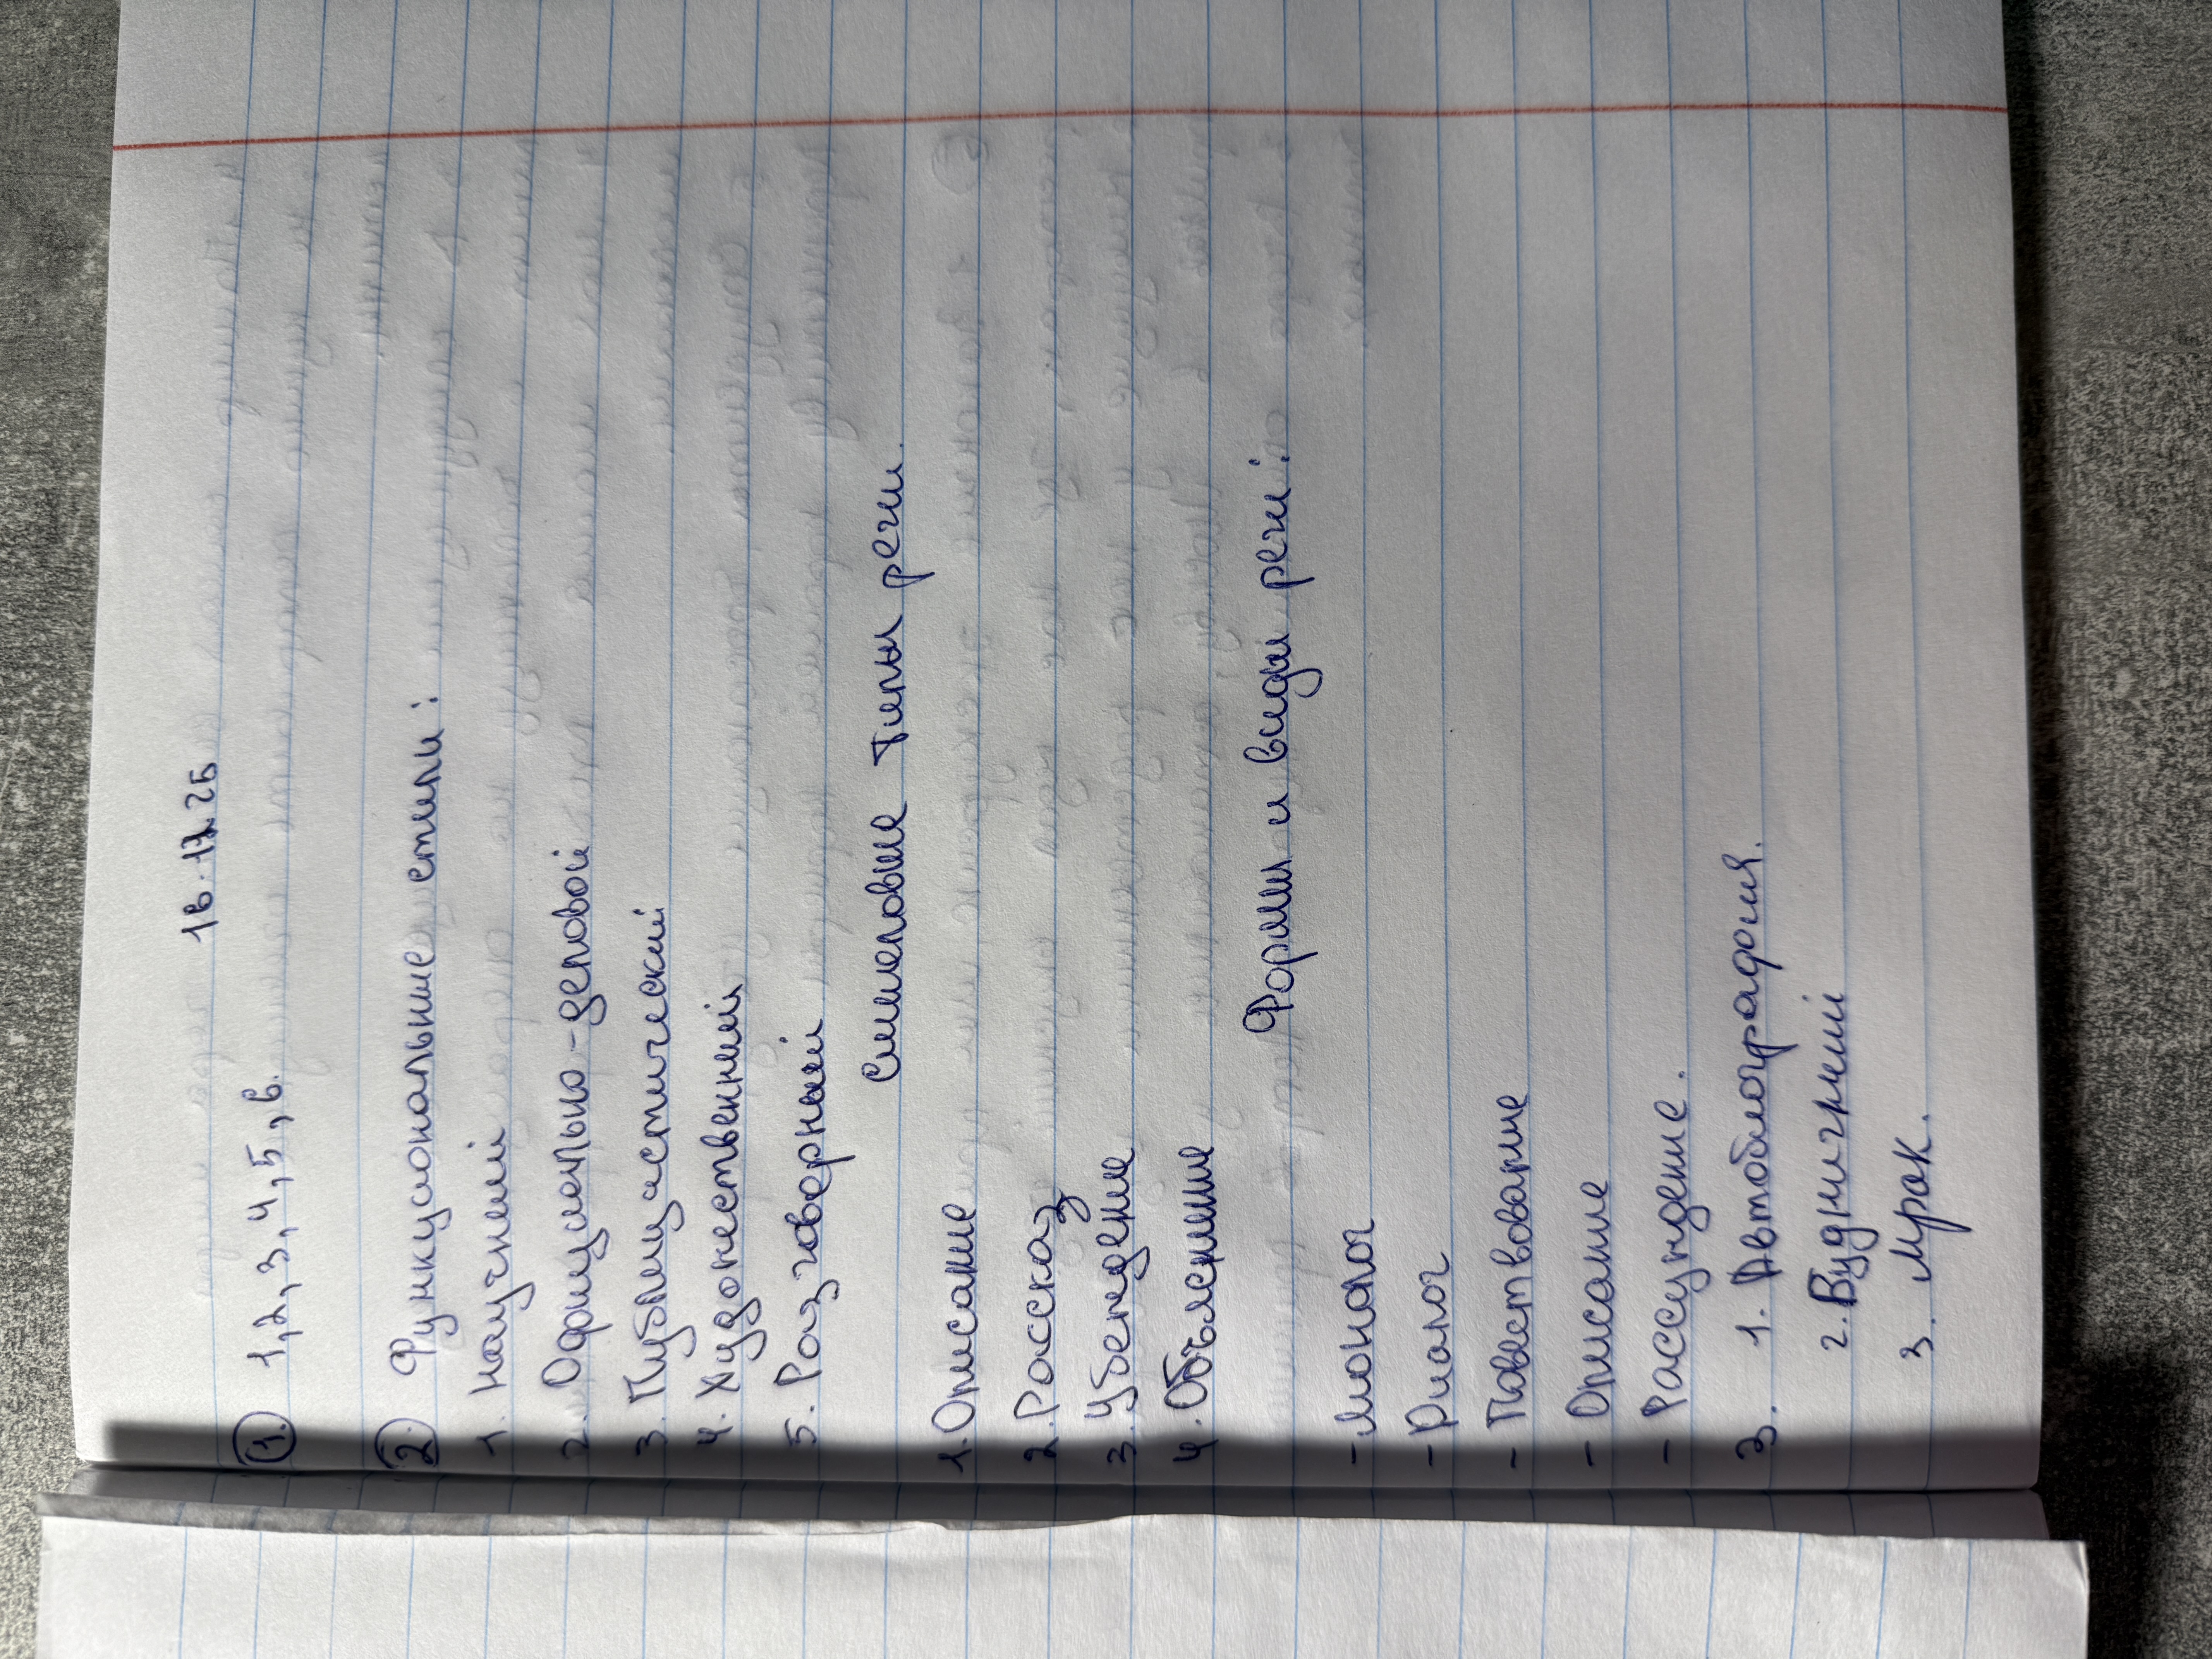 16.12.25
1. 1, 2, 3, 4, 5, 6.
2. Функциональные стили:
1. Научный
2. Официально-деловой
3. Публицистический
4. Художественный
5. Разговорный
Смысловые типы речи.
1. Описание
2. Рассказ
3. Убеждение
4. Объяснение
Формы и виды речи:
- Монолог
- Диалог
- Повествование
- Описание
- Рассуждение.
3. 1. Автобиография.
3. Мрак.